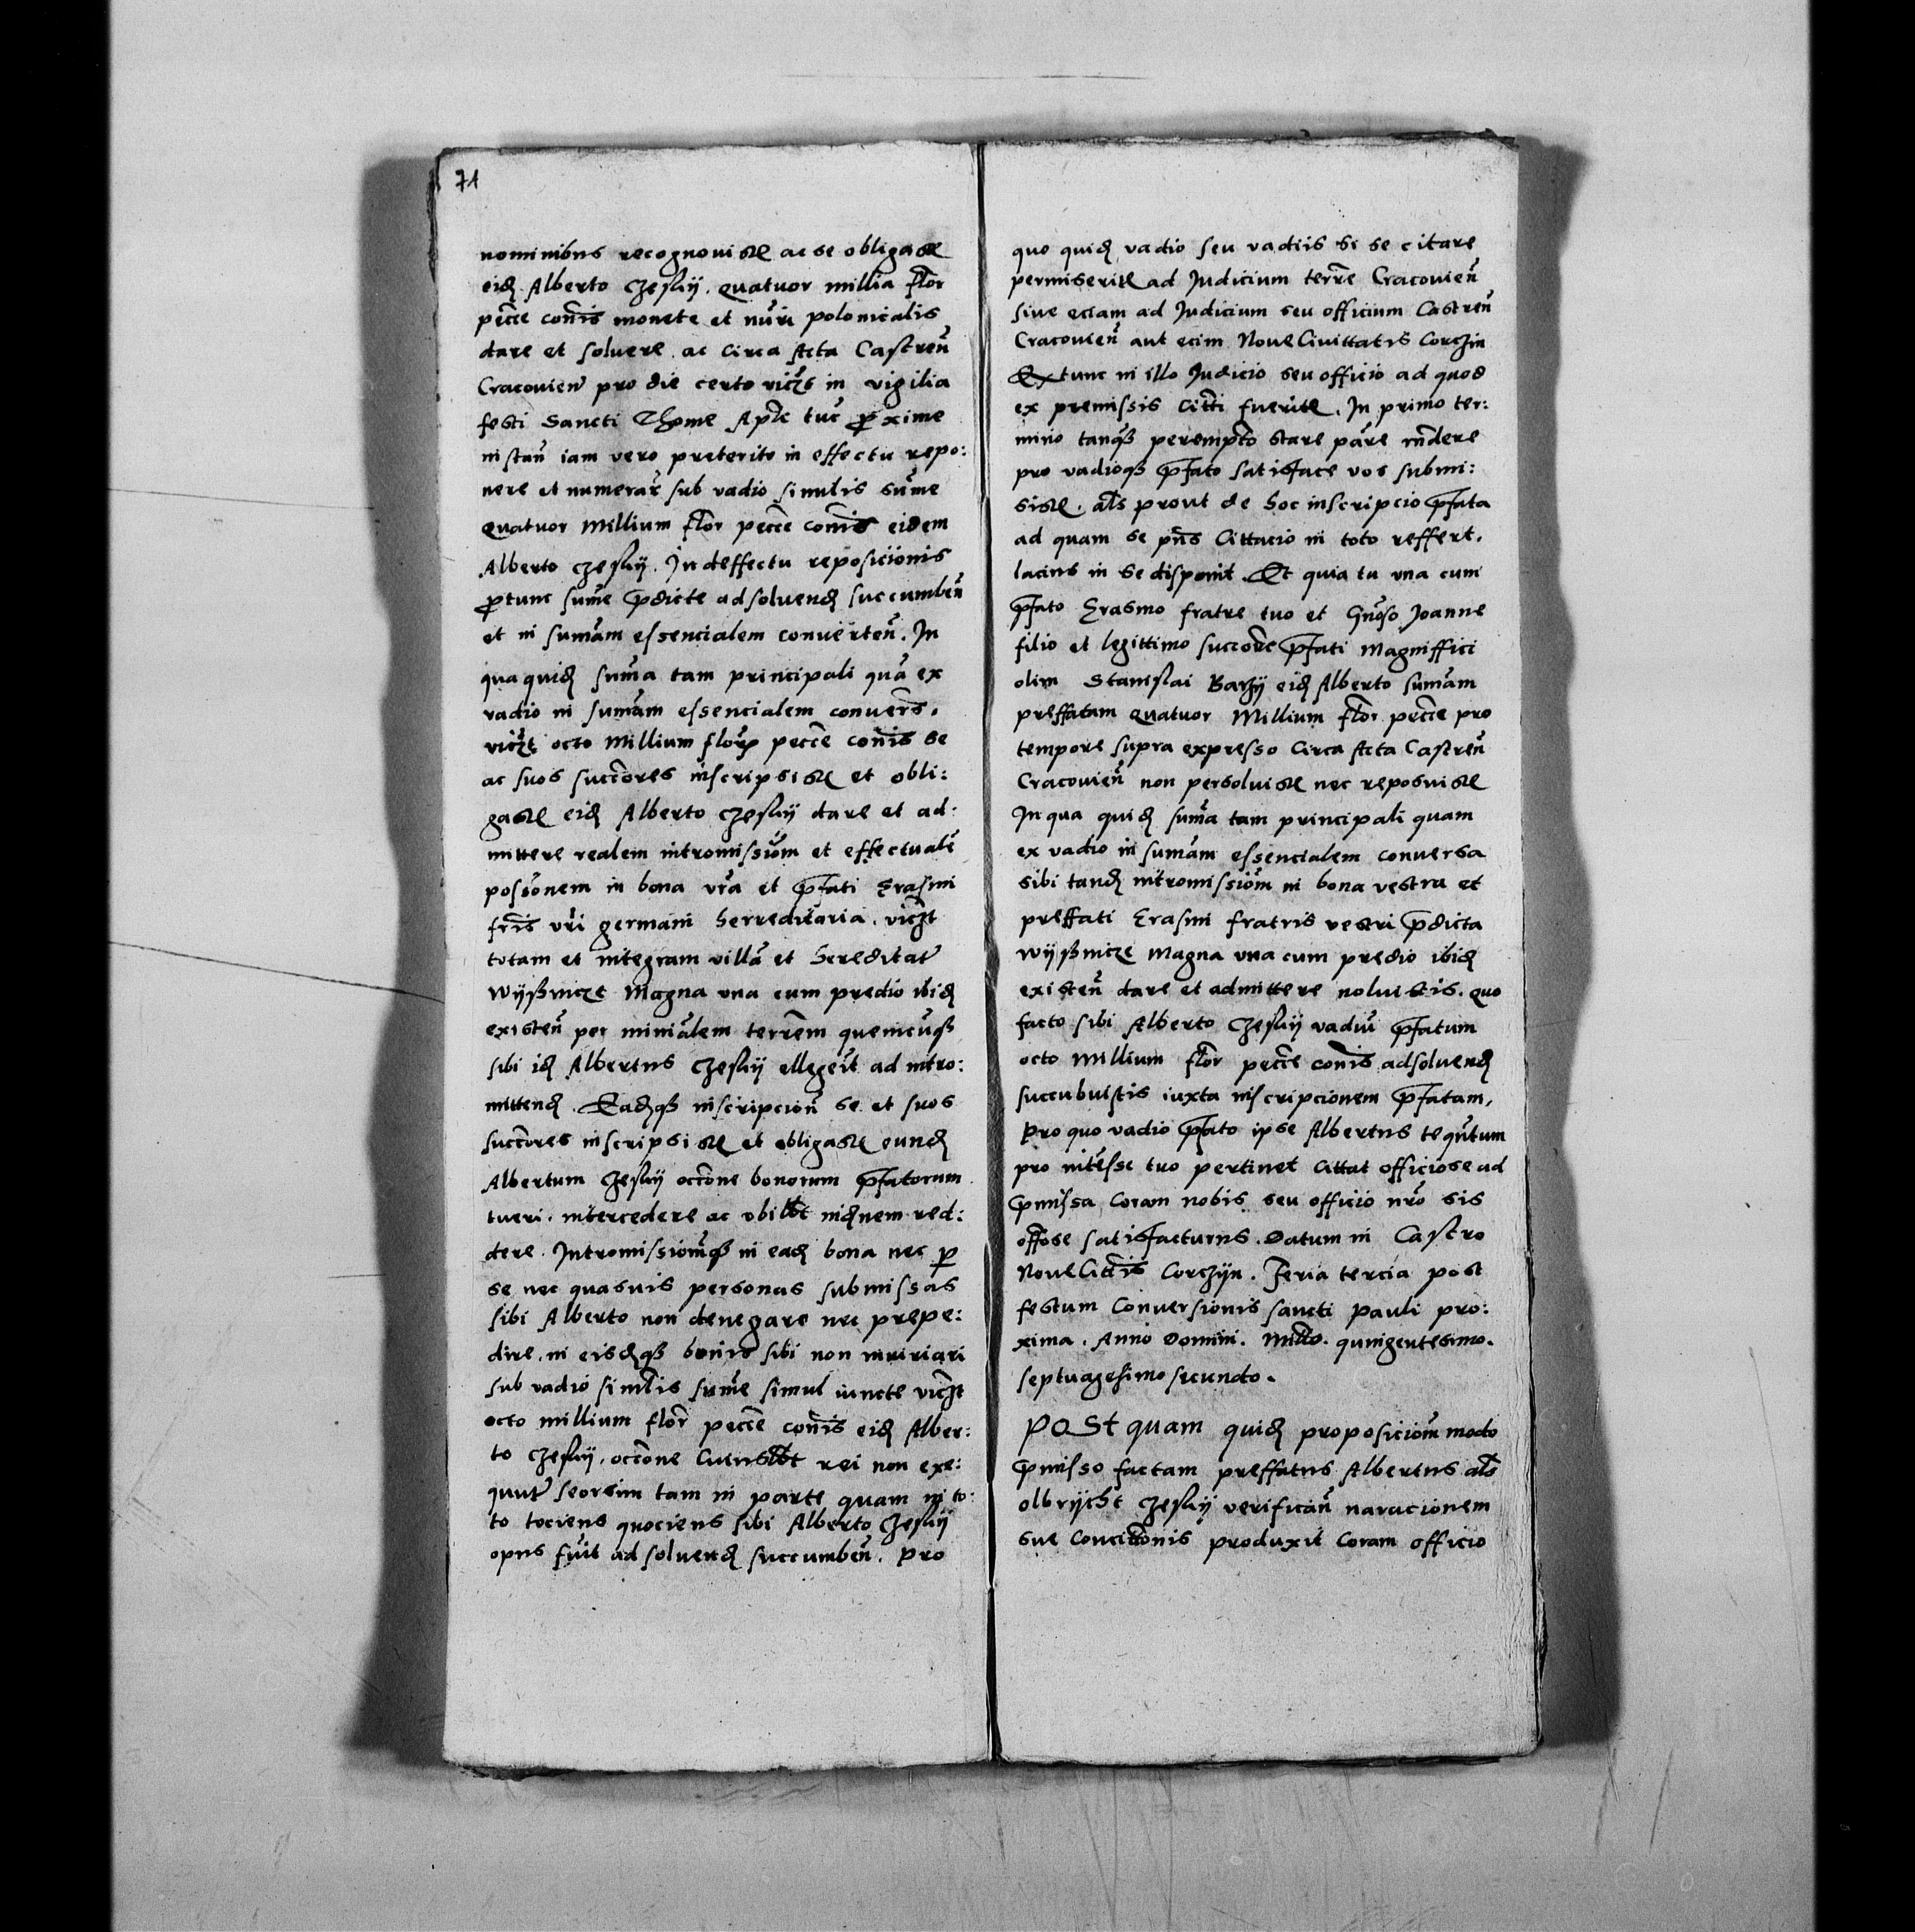 71
nominibus recognovisse ac se obligasse
eid Alberto Czeskÿ. quatuor millia flor
pecce conis monete et nuri polonicalis
dare et solvere. ac circa Acta Castren
Cracovien pro die certo viczt in vigilia
festi Sancti Thome Apli tuc proxime
instan iam vero preterito in effectu repo:
nere et numerar sub vadio similis sume
quatuor Millium flor pecce conis eidem
Alberto Czeskÿ. In deffectu reposicionis
protunc sume predicte ad solvend succumben
et in sumam essencialem converten. In
qua quid suma tam principali qua ex
vadio in sumam essencialem convers.
viczt octo Millium florum pecce conis se
ac suos succores inscripsisse et obli:
gasse eid Alberto Czeskÿ dare et ad:
mittere realem intromissiom et effectuale
posionem in bona vra et prefati Erasmi
fris vri germani herreditaria. viczt
totam et integram villa et hereditate
Wÿsznicze Magna una cum predio ibid
existen per minialem terrem quemcunqz
sibi id Albertus Czeskÿ ellegerit ad intro:
mittend. Eadqz inscripcion se et suos
succores inscripsisse et obligasse eund
Albertum Czeskÿ occone bonorum prefatorum
tueri. intercedere ac ubilbt indnem red:
dere. Intromissiomqz in ead bona nec per
se nec quasuis personas submissas
sibi Alberto non denegare nec prepe:
dire. in eisdqz bonis sibi non iniuriari
sub vadio similis sume simul iuncte viczt
octo millium flor pecce conis eid Alber:
to Czeskÿ. occone cuiuslbt rei non exe:
quut seorsim tam in parte quam in to:
to tociens quociens sibi Alberto Czeskÿ
opus fuit ad solvend succumben. Pro
quo quid vadio seu vadiis si se citare
permiserit ad Judicium terre Cracovien
sive eciam ad Judicium seu officium Castren
Cracovien aut ecim Nove Civittatis Corczin
Extunc in illo Judicio seu officio ad quod
ex premissis citti fuerit. In primo ter:
mino tanqz perempto stare pare rndere
pro vadioqz prefato satisface vos submi:
sisse. als prout de hoc inscripcio prefata
ad quam se pns Cittacio in toto reffert.
lacius in se disponit. Et quia tu una cum
prefato Erasmo fratre tuo et Gnoso Joanne
filio et legittimo succore prefati Magniffici
olim Stanislai Barzÿ eid Alberto sumam
preffatam quatuor Millium flor pecce pro
tempore supra expresso circa Acta Castren
Cracovien non persolvisse nec reposuisse
In qua quid suma tam principali quam
ex vadio in sumam essencialem conversa
sibi tand intromissiom in bona vestra et
preffati Erasmi fratris vestri predicta
Wÿsznicze Magna una cum predio ibid
existen dare et admittere noluistis. quo
facto sibi Alberto Czeskÿ vadiu prefatum
octo Millium flor pecce conis ad solvend
succubuistis iuxta inscripcionem prefatam.
Pro quo vadio prefato ipse Albertus te quntum
pro intesse tuo pertinet cittat officiose ad
premissa coram nobis seu officio nro sis
offose satisfacturus. Datum in Castro
Nove Cittis Corczÿn. Feria tercia post
festum Conversionis sancti Pauli pro:
xima. Anno Domini. Millo. quingentesimo.
septuagesimo secundo.
POSt quam quid proposiciom modo
premisso factam preffatus Albertus als
olbrÿcht Czeskÿ verifican naracionem
sue concittonis produxit coram officio